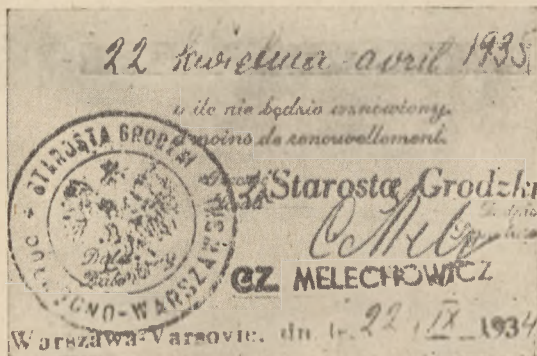 22 kwietnia avril 1935
o ile nie będzie wznowiony.
à moins de renouvellement.
STAROSTA GRODZKI
WARSZAWSKI
Starosta Grodzki
CZ. MELECHOWICZ
Warszawa-Varsovie, dn. le 22 IX 1934